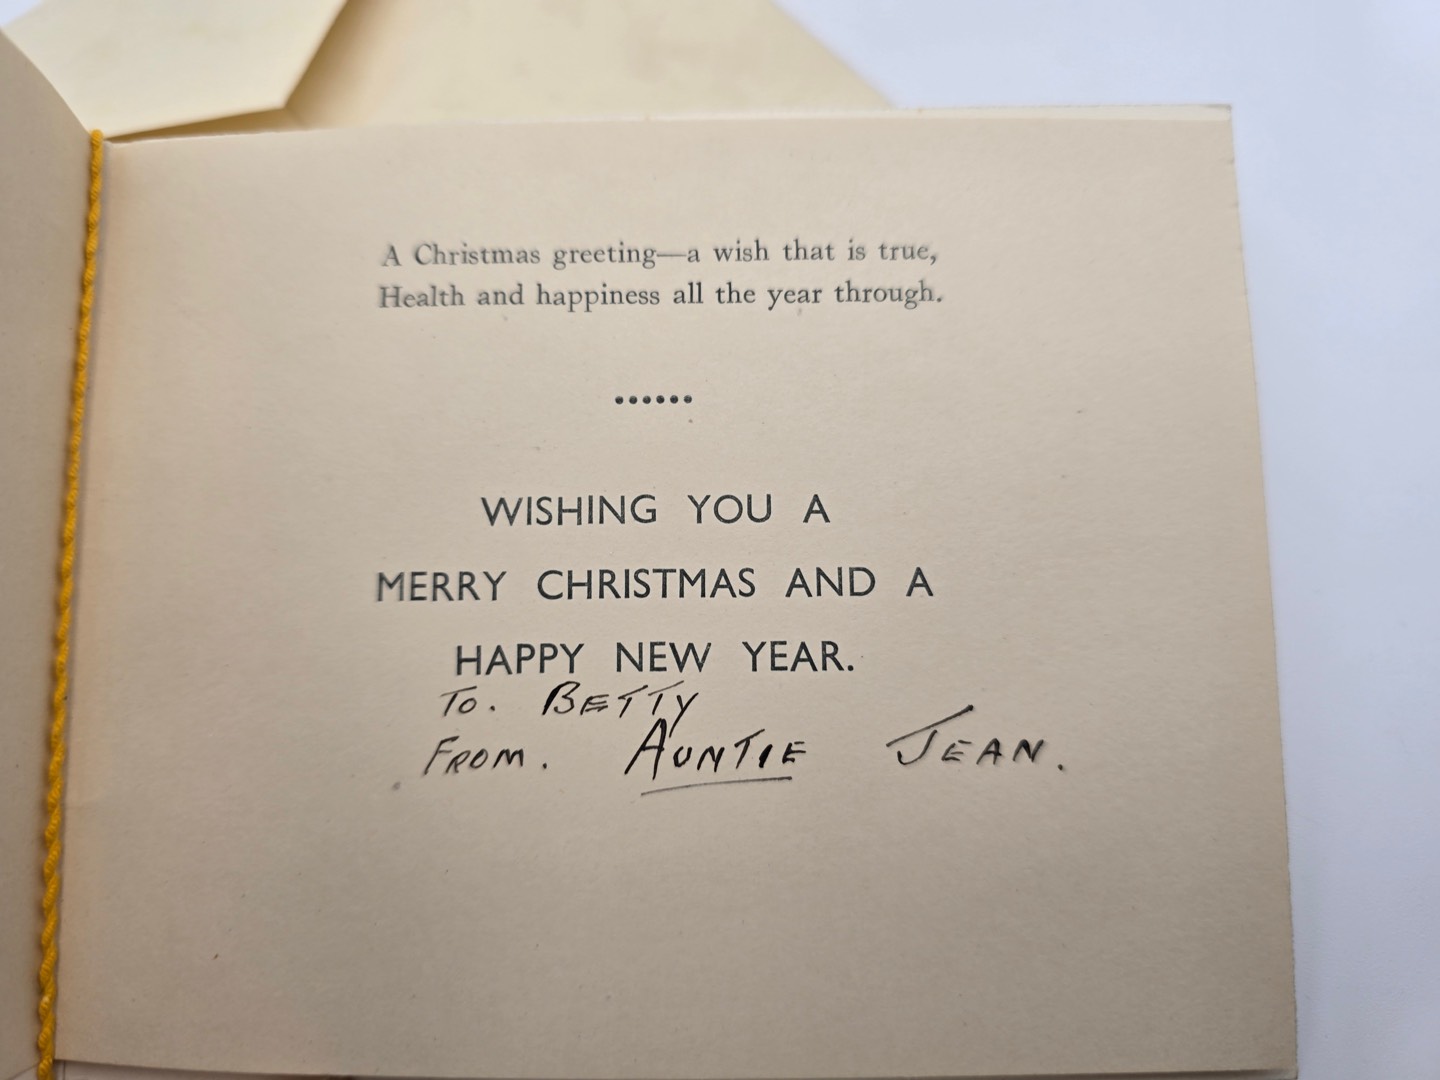 A Christmas greeting—a wish that is true,
Health and happiness all the year through.
......
WISHING YOU A
MERRY CHRISTMAS AND A
HAPPY NEW YEAR.
To. BETTY
FROM. AUNTIE JEAN.